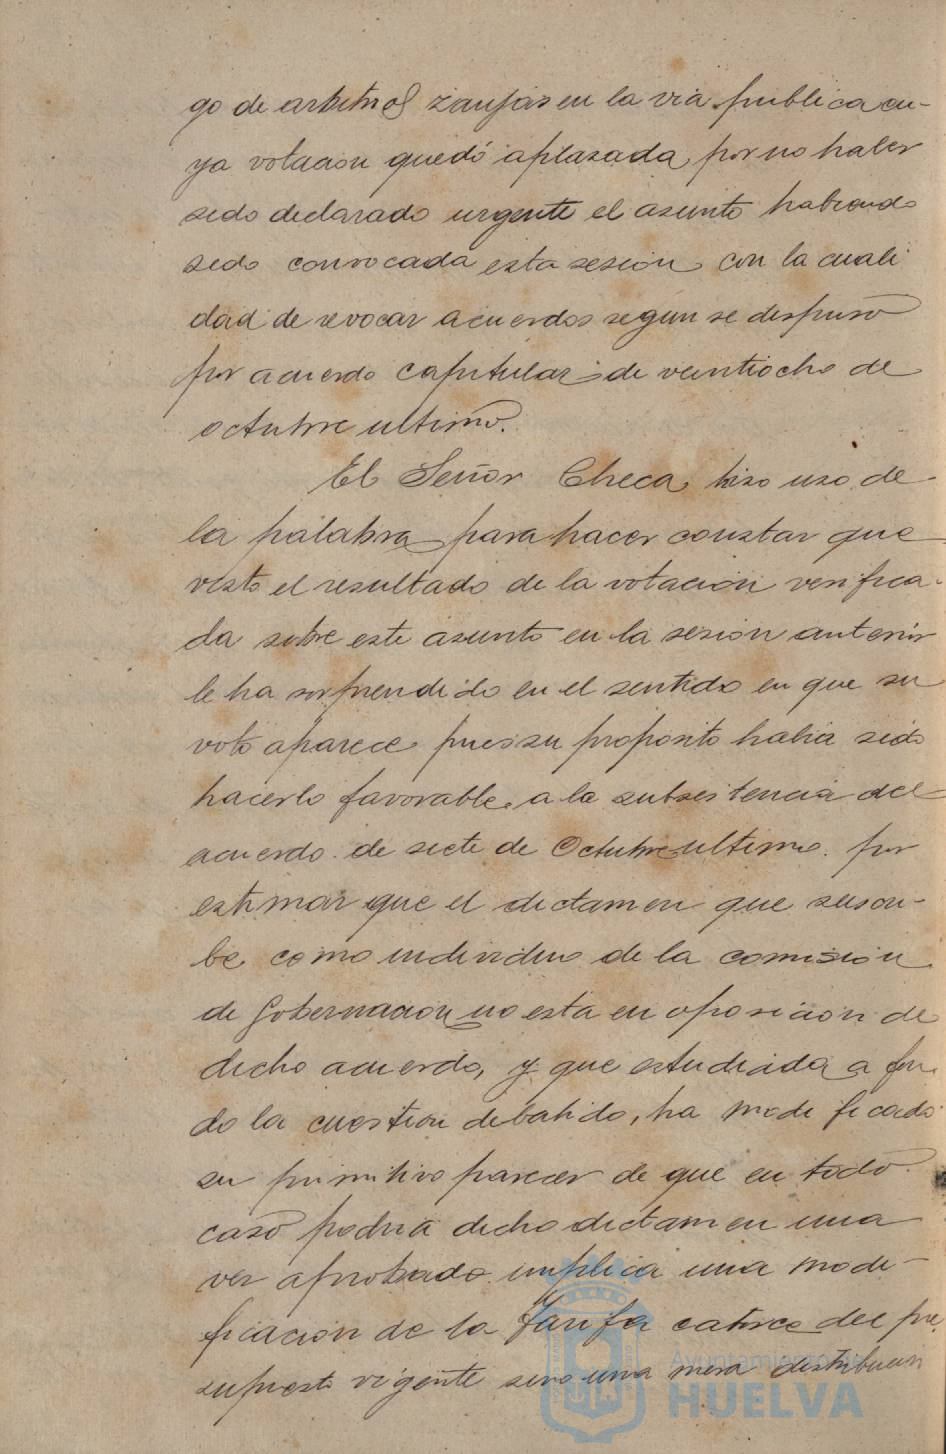 go de arbitrios zanjas en la via publica cu-
ya votacion quedó aplazada, por no haber
sido declarado urgente el asunto habiendo
sido convocada esta sesion con la cuali
dad de revocar acuerdos segun se dispuso
por acuerdo capitular de veintiocho de
octubre ultimo.
El Señor Checa, hizo uso de
la palabra para hacer constar que
visto el resultado de la votacion verifica-
da sobre este asunto en la sesion anterior
le ha sorprendido en el sentido en que su
voto aparece pues su proposito habia sido
hacerlo favorable a la subsistencia del
acuerdo de siete de Octubre ultimo. por
estimar que el dictamen que suscri-
be como individuo de la comision
de Gobernacion no esta en oposicion de
dicho acuerdo, y que estudiada a fon
do la cuestion debatido, ha modificado
su primitivo parecer de que en todo
caso podria dicho dictamen una
vez aprobado implica una modi-
ficacion de la Tarifa catorce del pre
supuesto vigente sino una mera distribucion
Ayuntamiento de
HUELVA